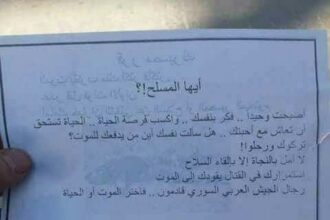 أيها المسلح؟!
أصبحت وحيداً .. فكر بنفسك .. واكسب فرصة الحياة .. الحياة تستحق
أن تعاش مع أحبتك .. هل سألت نفسك أين من يدفعك للموت؟
تركوك ورحلوا!
لا أمل بالنجاة إلا بإلقاء السلاح
استمرارك في القتال يقودك إلى الموت
رجال الجيش العربي السوري قادمون .. فاختر الموت أو الحياة